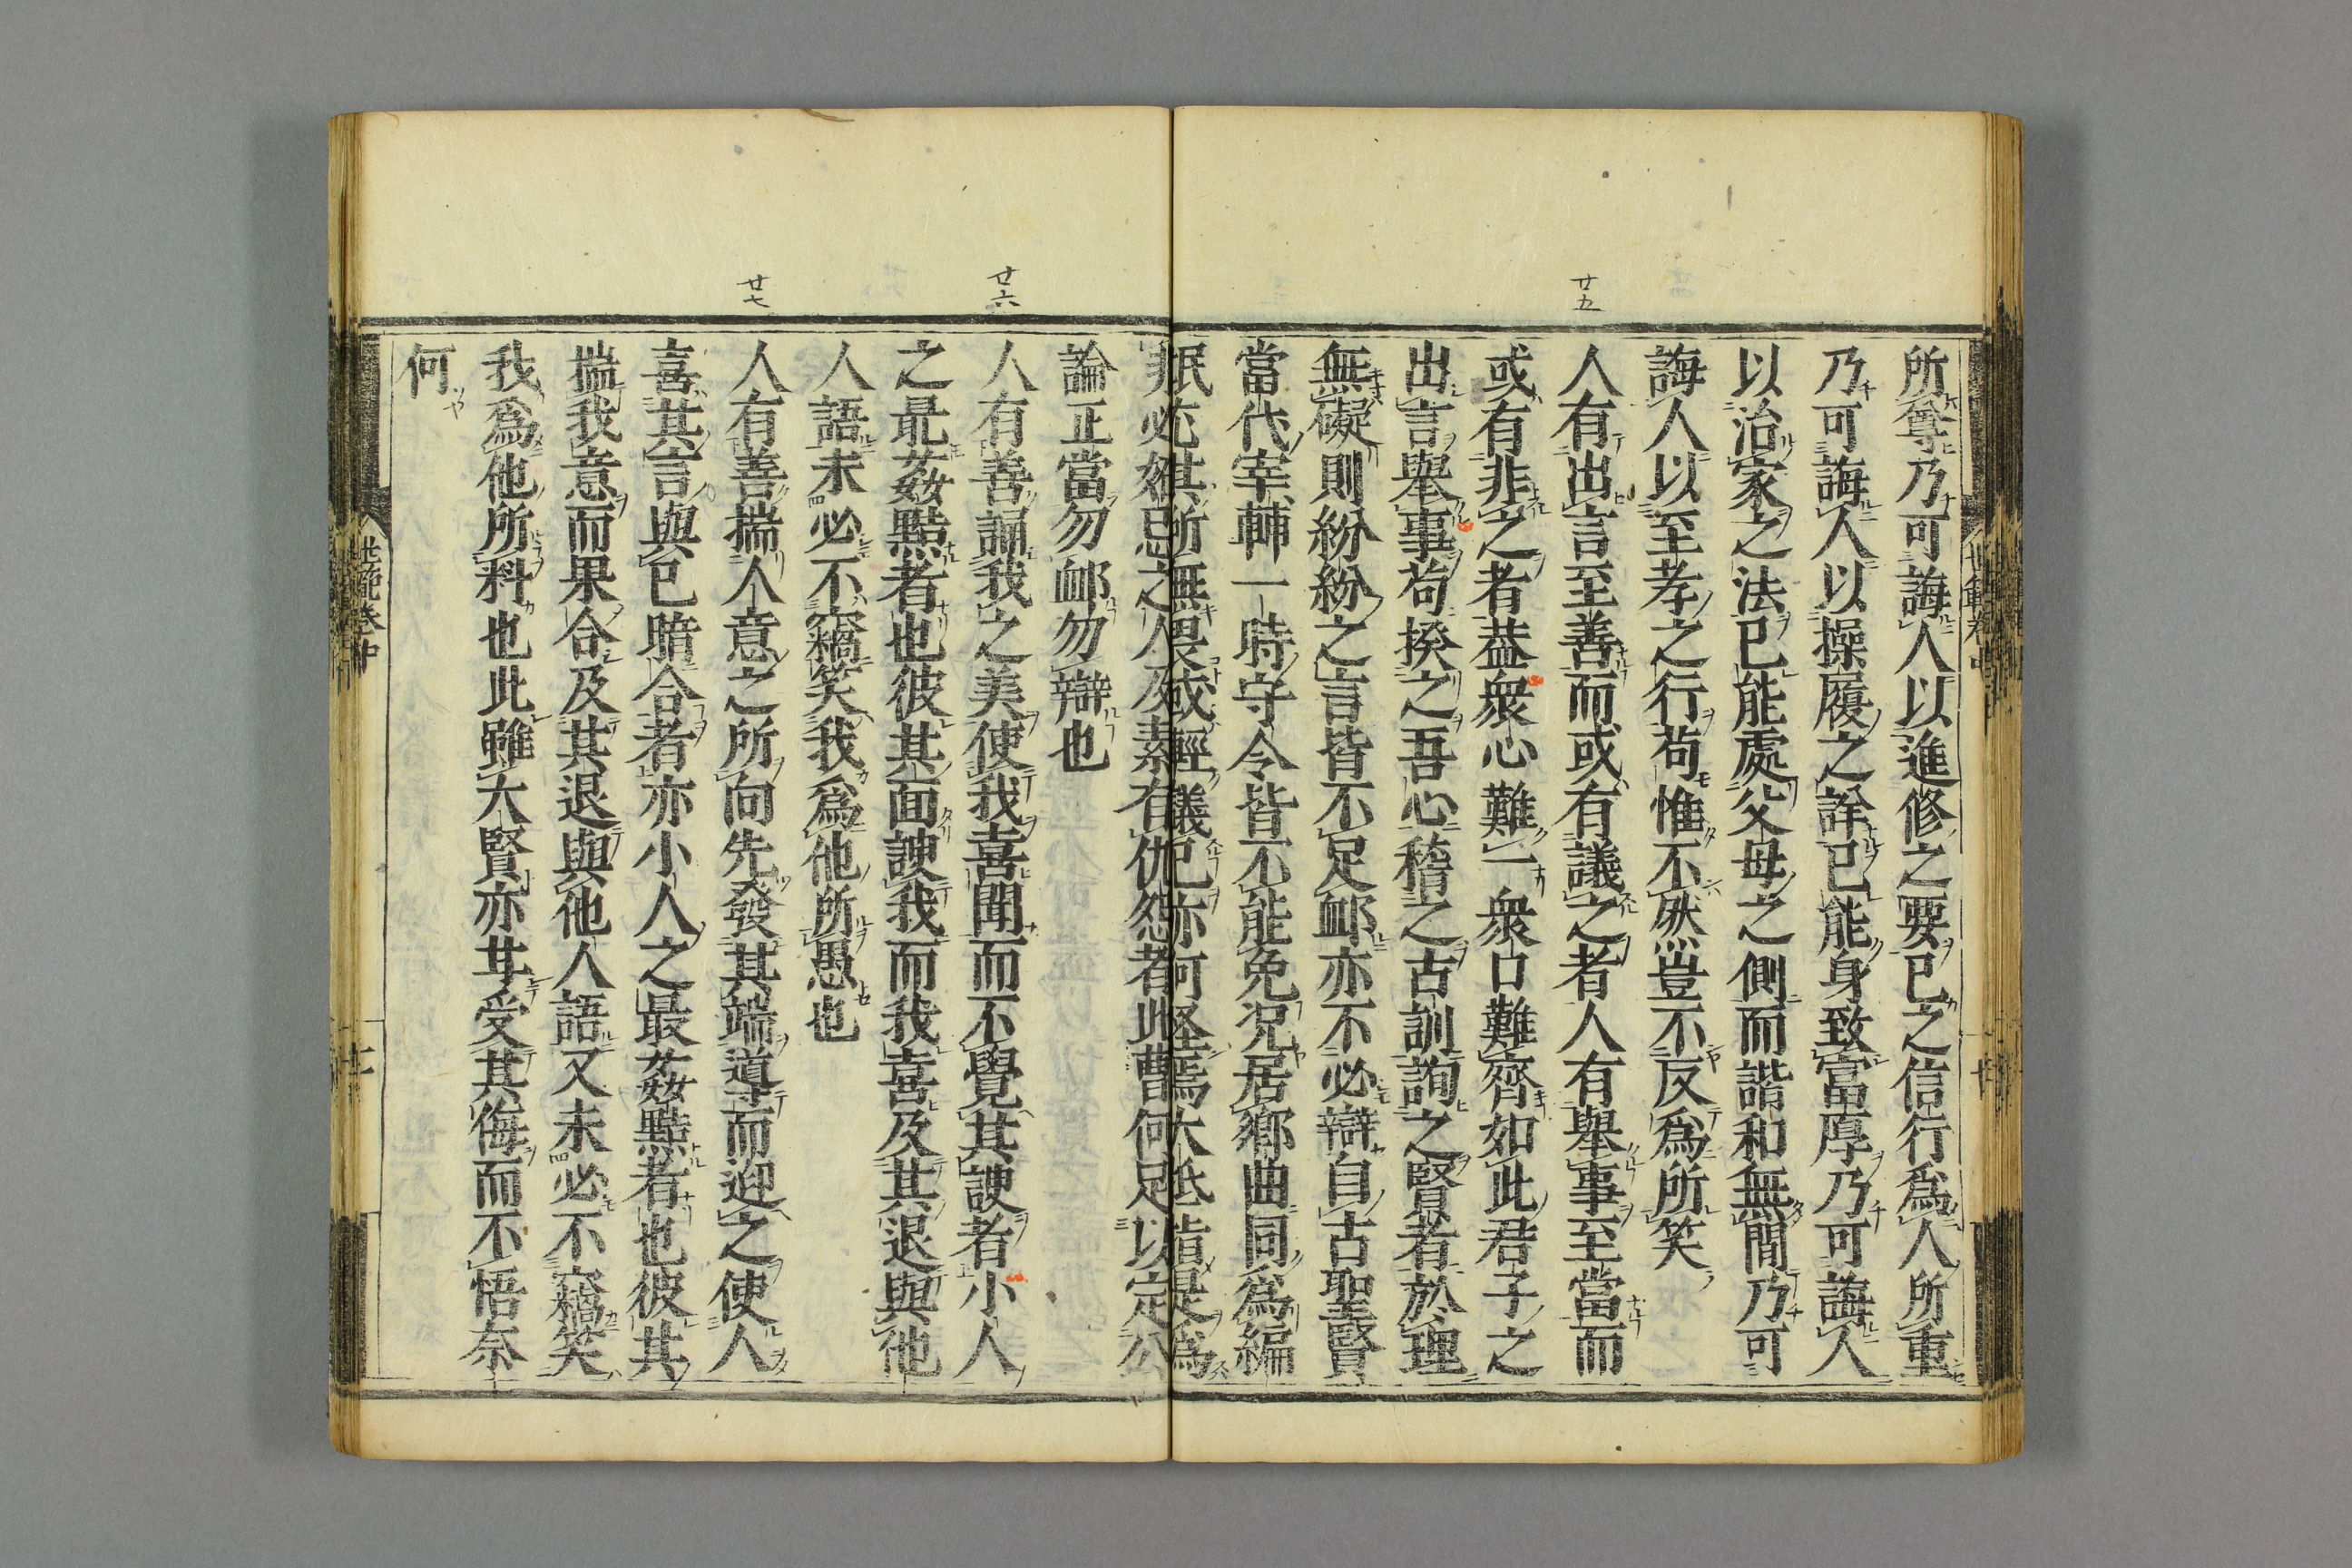 所奪乃可誨人以進修之要己之信行爲人所重
乃可誨人以操履之詳己能身致富厚乃可誨人
以治家之法己能處父母之側而諧和無間乃可
誨人以至孝之行苟惟不然豈不反爲所笑
廿五
人有出言至善而或有議之者人有舉事至當而
或有非之者葢衆心難一衆口難齊如此君子之
出言舉事苟揆之吾心稽之古訓詢之賢者於理
無礙則紛紛之言皆不足䘏亦不必辯自古聖賢
當代宰輔一時守令皆不能免況居鄉曲同爲編
氓尤其所無畏或輕議己亦何怪焉大抵指是爲
非必妬忌之人及素有仇怨者此曹何足以定公
論正當勿䘏勿辯也
廿六
人有善誦我之美使我喜聞而不覺其諛者小人
之最姦黠者也彼其面諛我而我喜及其退與他
人語未必不竊笑我爲他所愚也
廿七
人有善揣人意之所向先發其端導而迎之使人
喜其言與己暗合者亦小人之最姦黠者也彼其
揣我意而果合及其退與他人語又未必不竊笑
我爲他所料也此雖大賢亦甘受其侮而不悟奈
何
世範卷中
十一